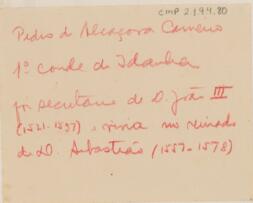 CMP 2.194.80
Pedro d Alcaçova Carneiro
1º conde de Idanha
foi secretario de D. João III
(1521-1557) e vivia no reinado
de D. Sebastião (1557-1578)